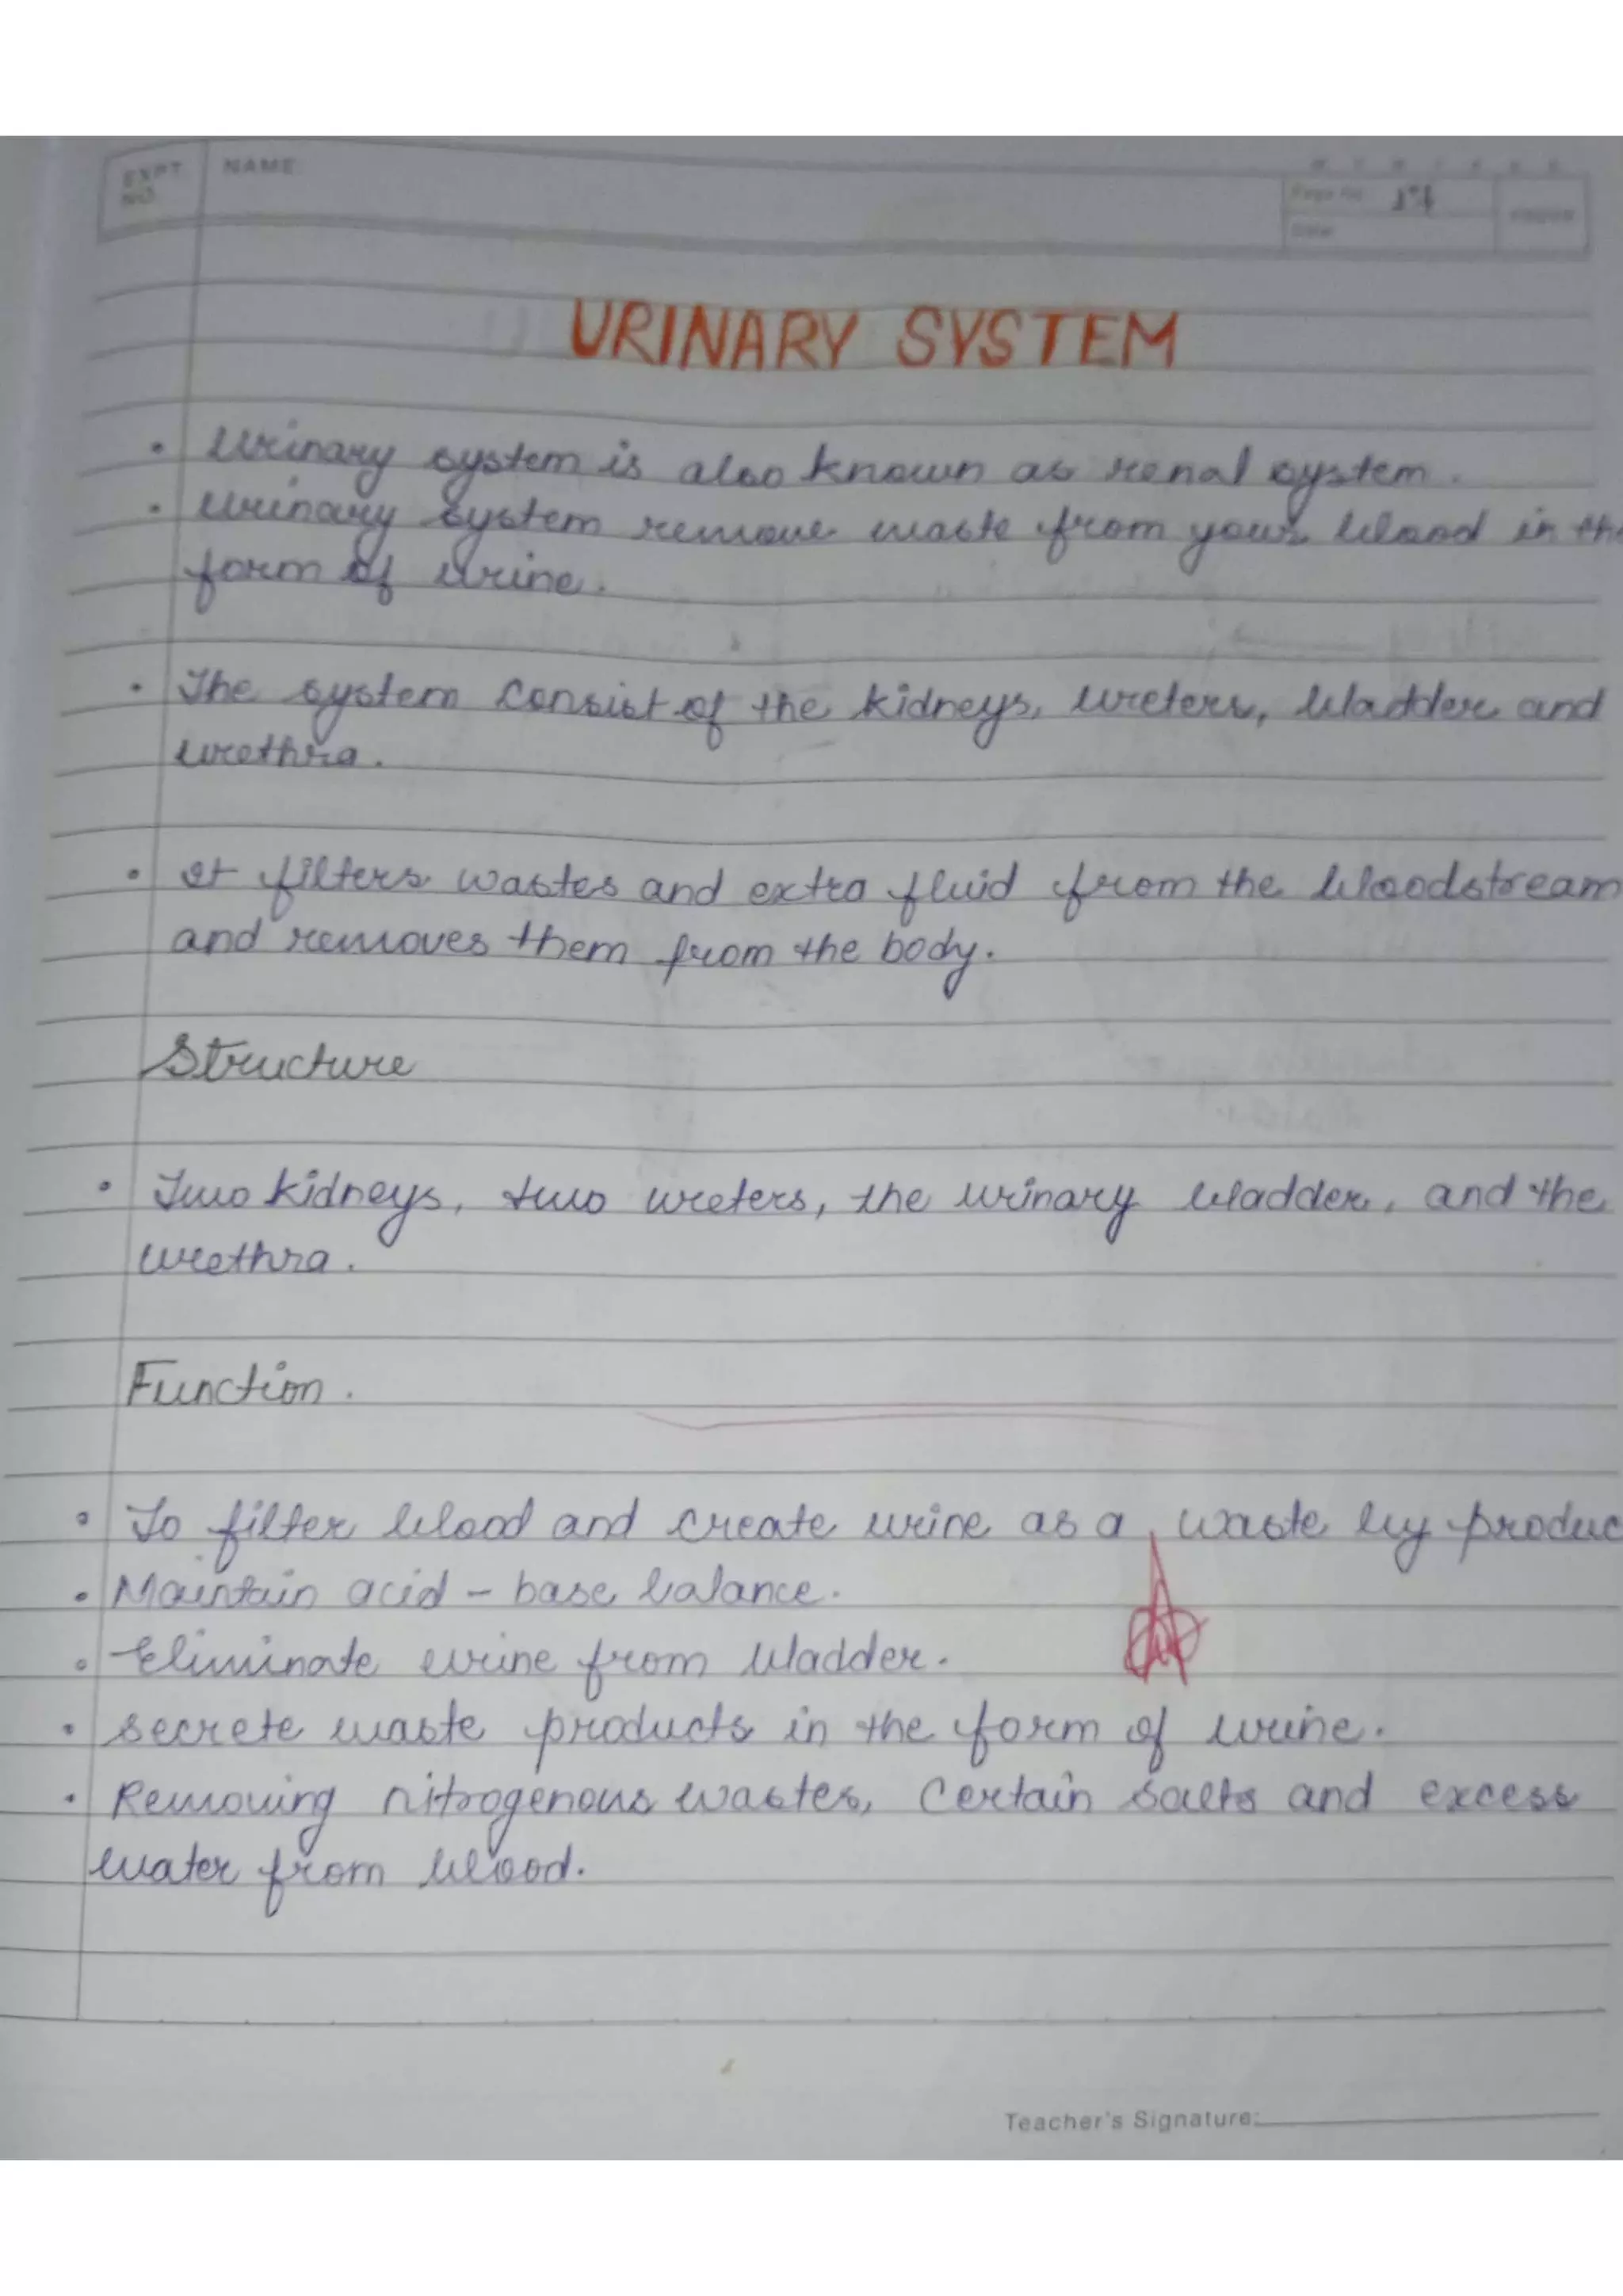 EXPT. NO.
NAME
Page No.
Date
URINARY SYSTEM
• Urinary system is also known as renal system.
• Urinary system remove waste from your blood in the
form of urine.
• The system consist of the kidneys, ureters, bladder and
urethra.
• It filters wastes and extra fluid from the bloodstream
and removes them from the body.
Structure
• Two kidneys, two ureters, the urinary bladder, and the
urethra.
Function.
• To filter blood and create urine as a waste by produc
• Maintain acid - base balance.
• Eliminate urine from bladder.
• secrete waste products in the form of urine.
• Removing nitrogenous wastes, Certain salts and excess
water from blood.
Teacher's Signature: